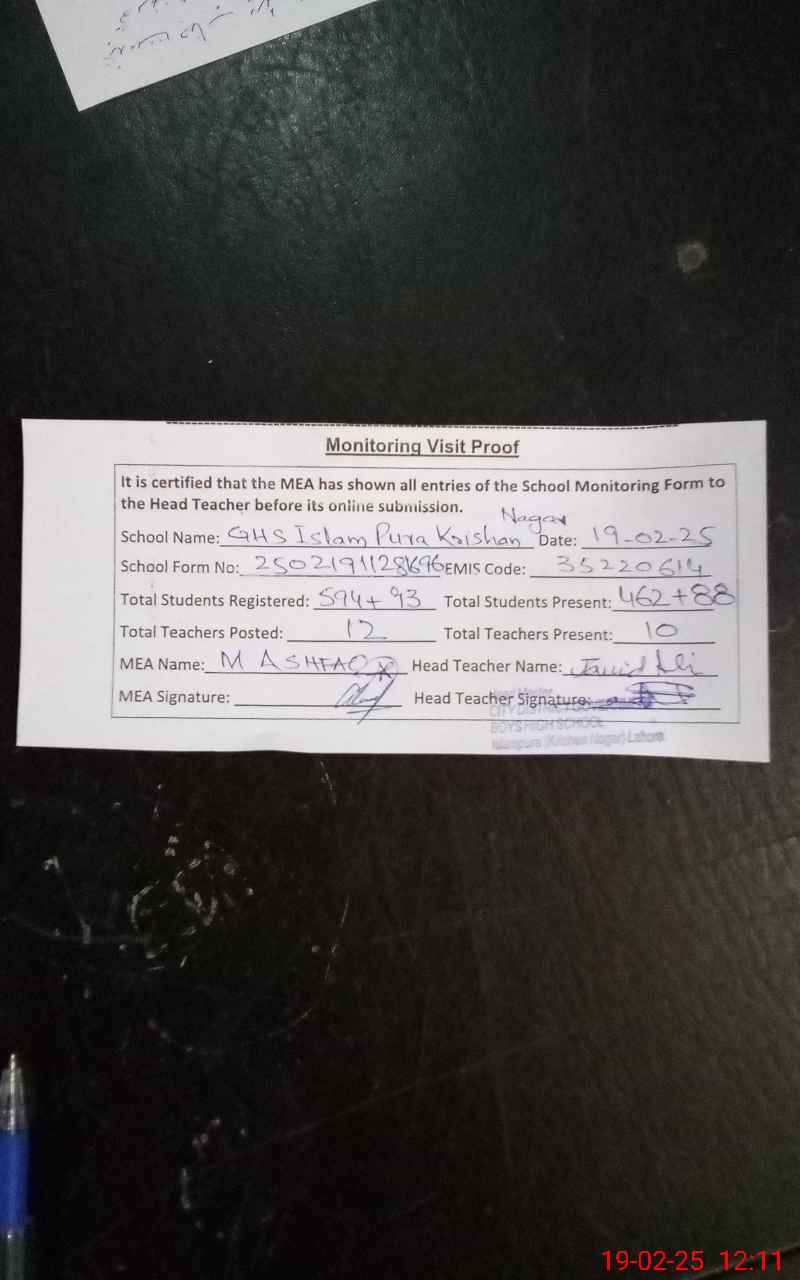 Monitoring Visit Proof
It is certified that the MEA has shown all entries of the School Monitoring Form to
the Head Teacher before its online submission.
School Name: GHS Islam Pura Krishan Nagar Date: 19-02-25
School Form No: EMIS Code: 35220614
Total Students Registered: 594+93 Total Students Present: 462+88
Total Teachers Posted: 12 Total Teachers Present: 10
MEA Name: M ASHFAQ Head Teacher Name: Javid Ali
MEA Signature: Head Teacher Signature:
Head Master
CITY DISTRICT
BOYS HIGH SCHOOL
Islampura (Krishan Nagar) Lahore.
19-02-25 12:11